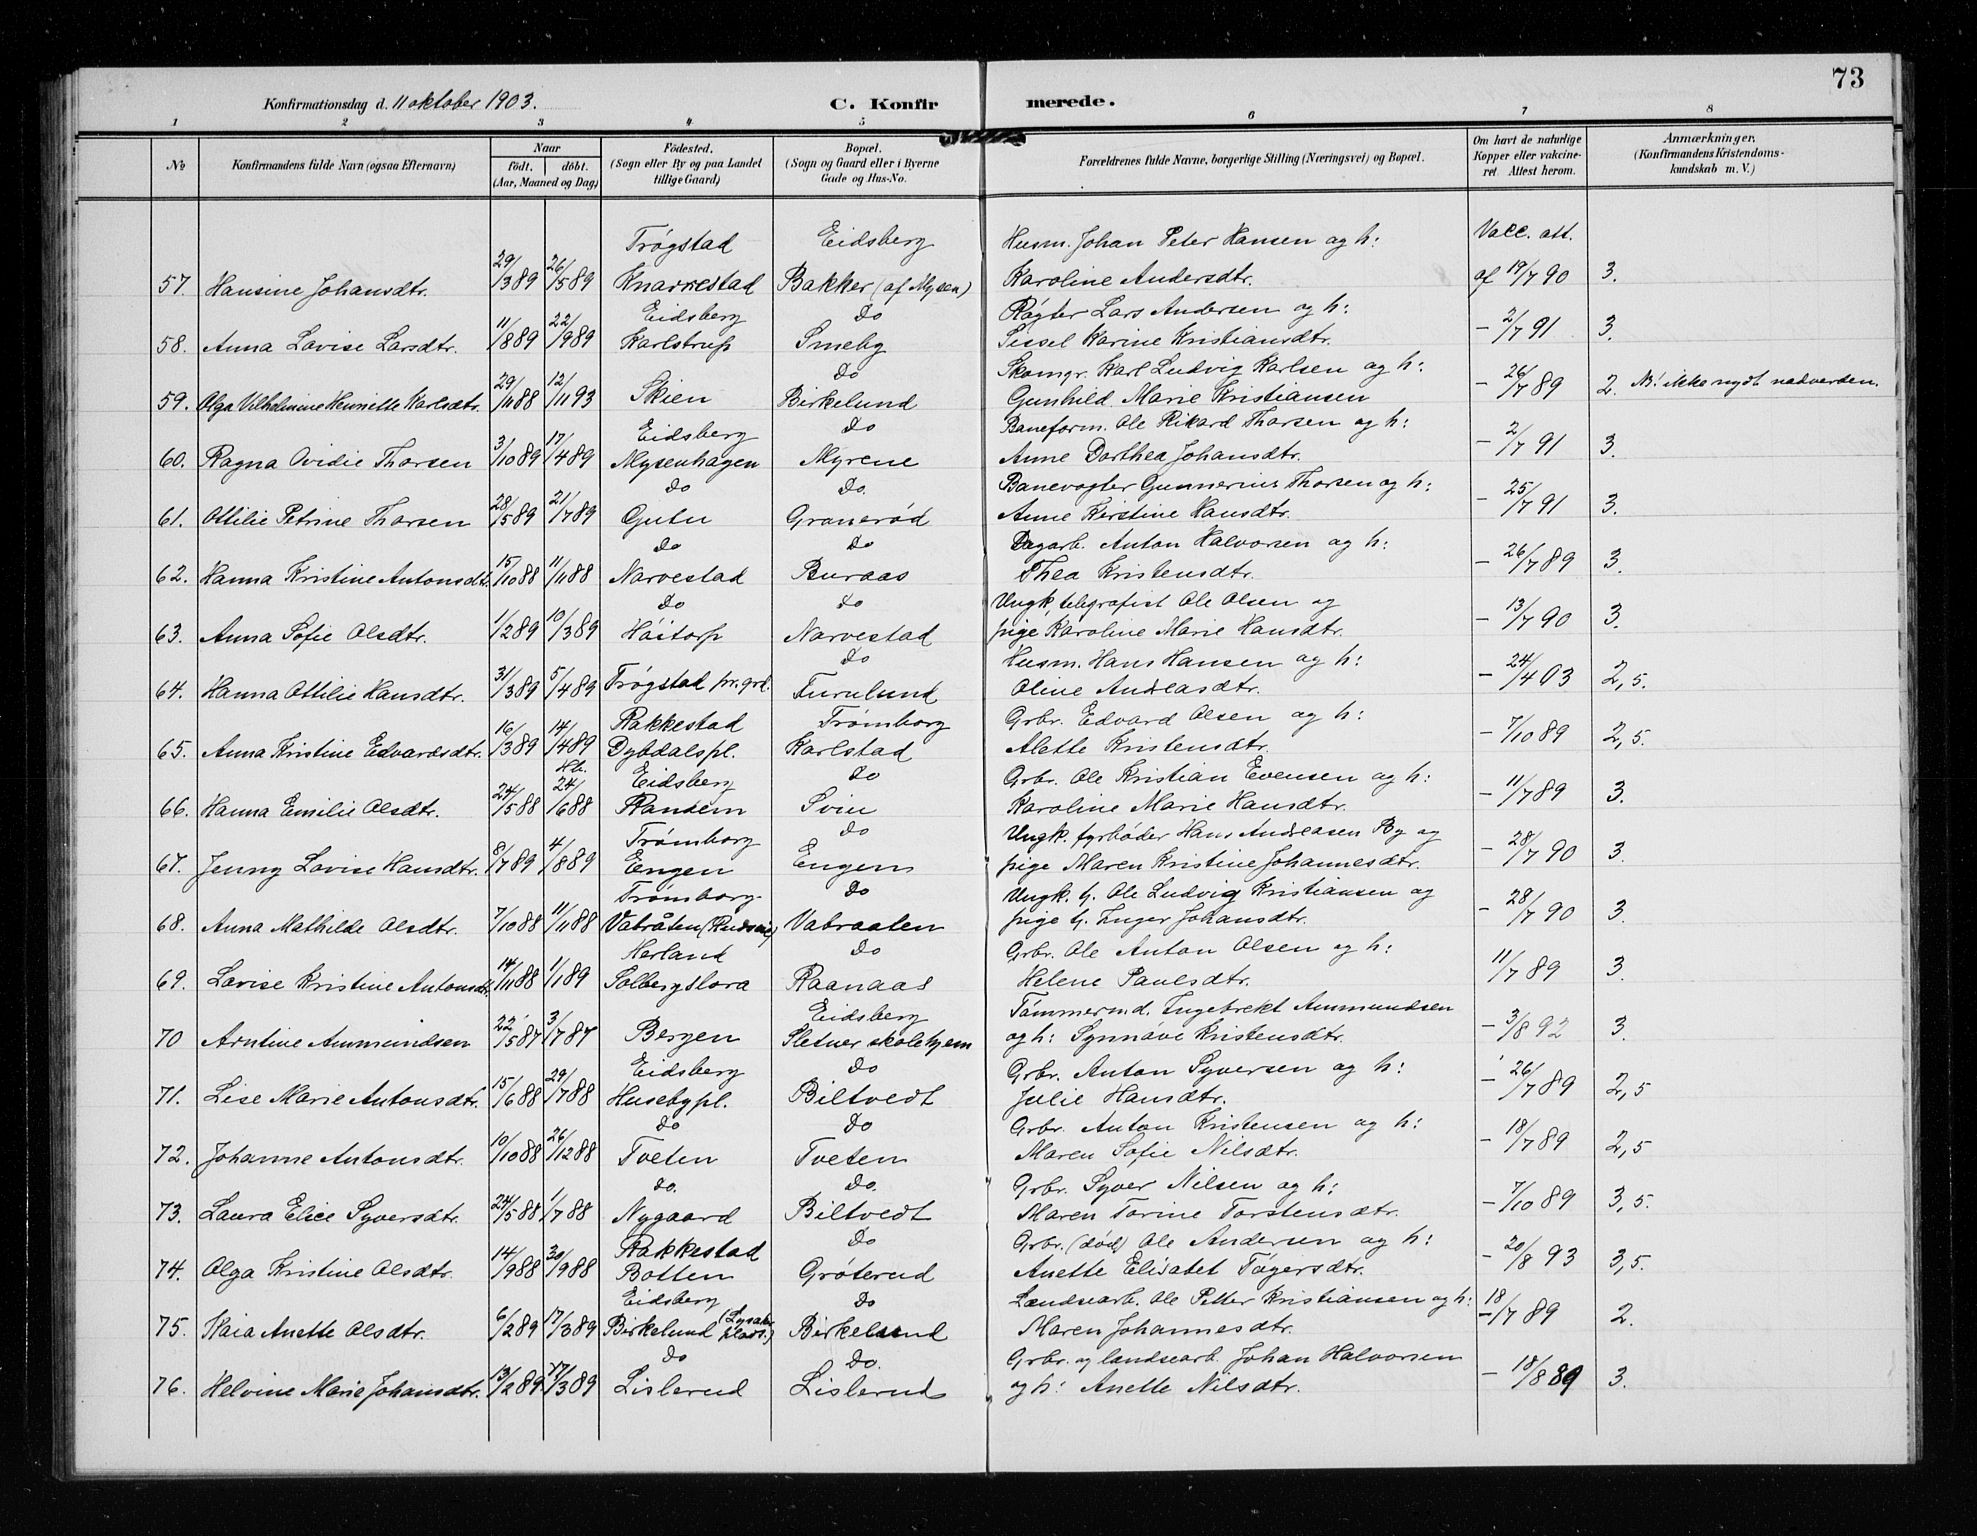 73
Konfirmationsdag d. 11 oktober 1903.
C. Konfirmerede.
1 2 3 4 5 6 7 8
No
Konfirmandens fulde Navn (ogsaa Efternavn)
Naar
født. døbt.
(Aar, Maaned og Dag)
Födested.
(Sogn eller By og paa Landet
tillige Gaard)
Bopæl.
(Sogn og Gaard eller i Byerne
Gade og Hus-No.
Forældrenes fulde Navne, borgerlige Stilling (Næringsvei) og Bopæl.
Om havt de naturlige
Kopper eller vakcine-
ret. Attest herom.
Anmærkninger.
(Konfirmandens Kristendoms-
kundskab m. V.)
Trøgstad Eidsberg Husm. Johan Peter Hansen og h: Vacc. att.
57. Hansine Johansdtr. 29/3 89 26/5 89 Knarrestad Bakker (af Mysen) Karoline Andersdtr. af 19/7 90 3.
Eidsberg do Røgter Lars Andersen og h:
58. Anna Lovise Larsdtr. 11/8 89 22/9 89 Karlstrup Smeby Sissel Karine Kristiansdtr. - 2/7 91 3.
do Skomgr. Karl Ludvig Karlsen og h:
59. Olga Vilhelmine Henriette Karlsdtr. 29/11 88 12/11 93 Skien Birkelund Gunhild Marie Kristiansen - 26/7 89 2. ikke nydt nadverden.
Eidsberg do Baneform. Ole Rikard Thorsen og h:
60. Ragna Ovidie Thorsen 3/10 89 17/4 89 Mysenhagen Myrene Anne Dorthea Johansdtr. - 2/7 91 3.
do do. Banevogter Gunnerius Thorsen og h:
61. Ottilie Petrine Thorsen 28/5 89 21/7 89 Gutu Granerød Anne Kirstine Hansdtr. - 25/7 91 3.
do do Dagarb. Anton Halvorsen og h:
62. Hanna Kristine Antonsdtr. 15/10 88 11/11 88 Narvestad Buraas Thea Kristensdtr. - 26/7 89 3.
do do Ungk, telegrafist Ole Olsen og
63. Anna Sofie Olsdtr. 1/2 89 10/3 89 Høitorp Narvestad pige Karoline Marie Hansdtr. - 13/7 90 3.
do Husm. Hans Hansen og h:
64. Hanna Ottilie Hansdtr. 31/3 89 5/4 89 Trøgstad pr.grd. Furulund Oline Andreasdtr. - 24/4 03 2,5.
Rakkestad Trømborg Grbr. Edvard Olsen og h:
65. Anna Kristine Edvardsdtr. 16/3 89 14/4 89 Dybdalspl. Karlstad Alette Kristensdtr. - 7/10 89 2,5.
Hb. Eidsberg do Grbr. Ole Kristian Evensen og h:
66. Hanna Emilie Olsdtr. 24/5 88 24/6 88 Randem Svin Karoline Marie Hansdtr. - 11/7 89 3.
Trømborg do Ungk. fyrbøder Hans Andreasen By og
67. Jenny Lovise Hansdtr. 8/7 89 4/8 89 Engen Engen pige Maren Kristine Johannesdtr. - 28/7 90 3.
Trømborg. do Ungk. tj. Ole Ludvig Kristiansen og
68. Anna Mathilde Olsdtr. 7/10 88 11/11 88 Vatråten Vatraaten pige tj. Inger Johansdtr. - 28/7 90 3.
Herland do Grbr. Ole Anton Olsen og h:
69. Lovise Kristine Antonsdtr. 14/11 88 1/1 89 Solbergslora Raanaas Helene Paulsdtr. 11/7 89 3.
Eidsberg Tømmermd. Ingebrekt Ammundsen
70 Arntine Ammundsen 22/5 87 3/7 87 Bergen Sletner skolehjem og h: Synnøve Kristensdtr. - 3/8 92 3.
Eidsberg do Grbr. Anton Syversen og h:
71. Lise Marie Antonsdtr. 15/6 88 29/7 88 Husebypl. Biltvedt Julie Hansdtr. - 26/7 89 2,5
do do Grbr. Anton Kristensen og h:
72. Johanne Antonsdtr. 10/10 88 26/12 88 Tveten Tveten Maren Sofie Nilsdtr. - 18/7 89 2,5
do. do. Grbr. Syver Nilsen og h:
73. Laura Elise Syversdtr. 24/5 88 1/7 88 Nygaard Biltvedt Maren Torine Torstensdtr. - 7/10 89 3,5.
Rakkestad do Grbr. (død) Ole Andersen og h:
74. Olga Kristine Olsdtr. 14/9 88 30/9 88 Botten Grøterud Anette Elisabet Tøgersdtr. - 20/8 93 3,5.
Eidsberg do Landsearb. Ole Petter Kristiansen og h:
75. Kaia Anette Olsdtr. 6/2 89 17/3 89 Birkelund Birkelund Maren Johannesdtr. - 18/7 89 2.
do do. Grbr. og landsearb. Johan Halvorsen
76. Helvine Marie Johansdtr. 13/2 89 17/3 89 Lislerud Lislerud og h: Anette Nilsdtr. - 18/8 89 3.